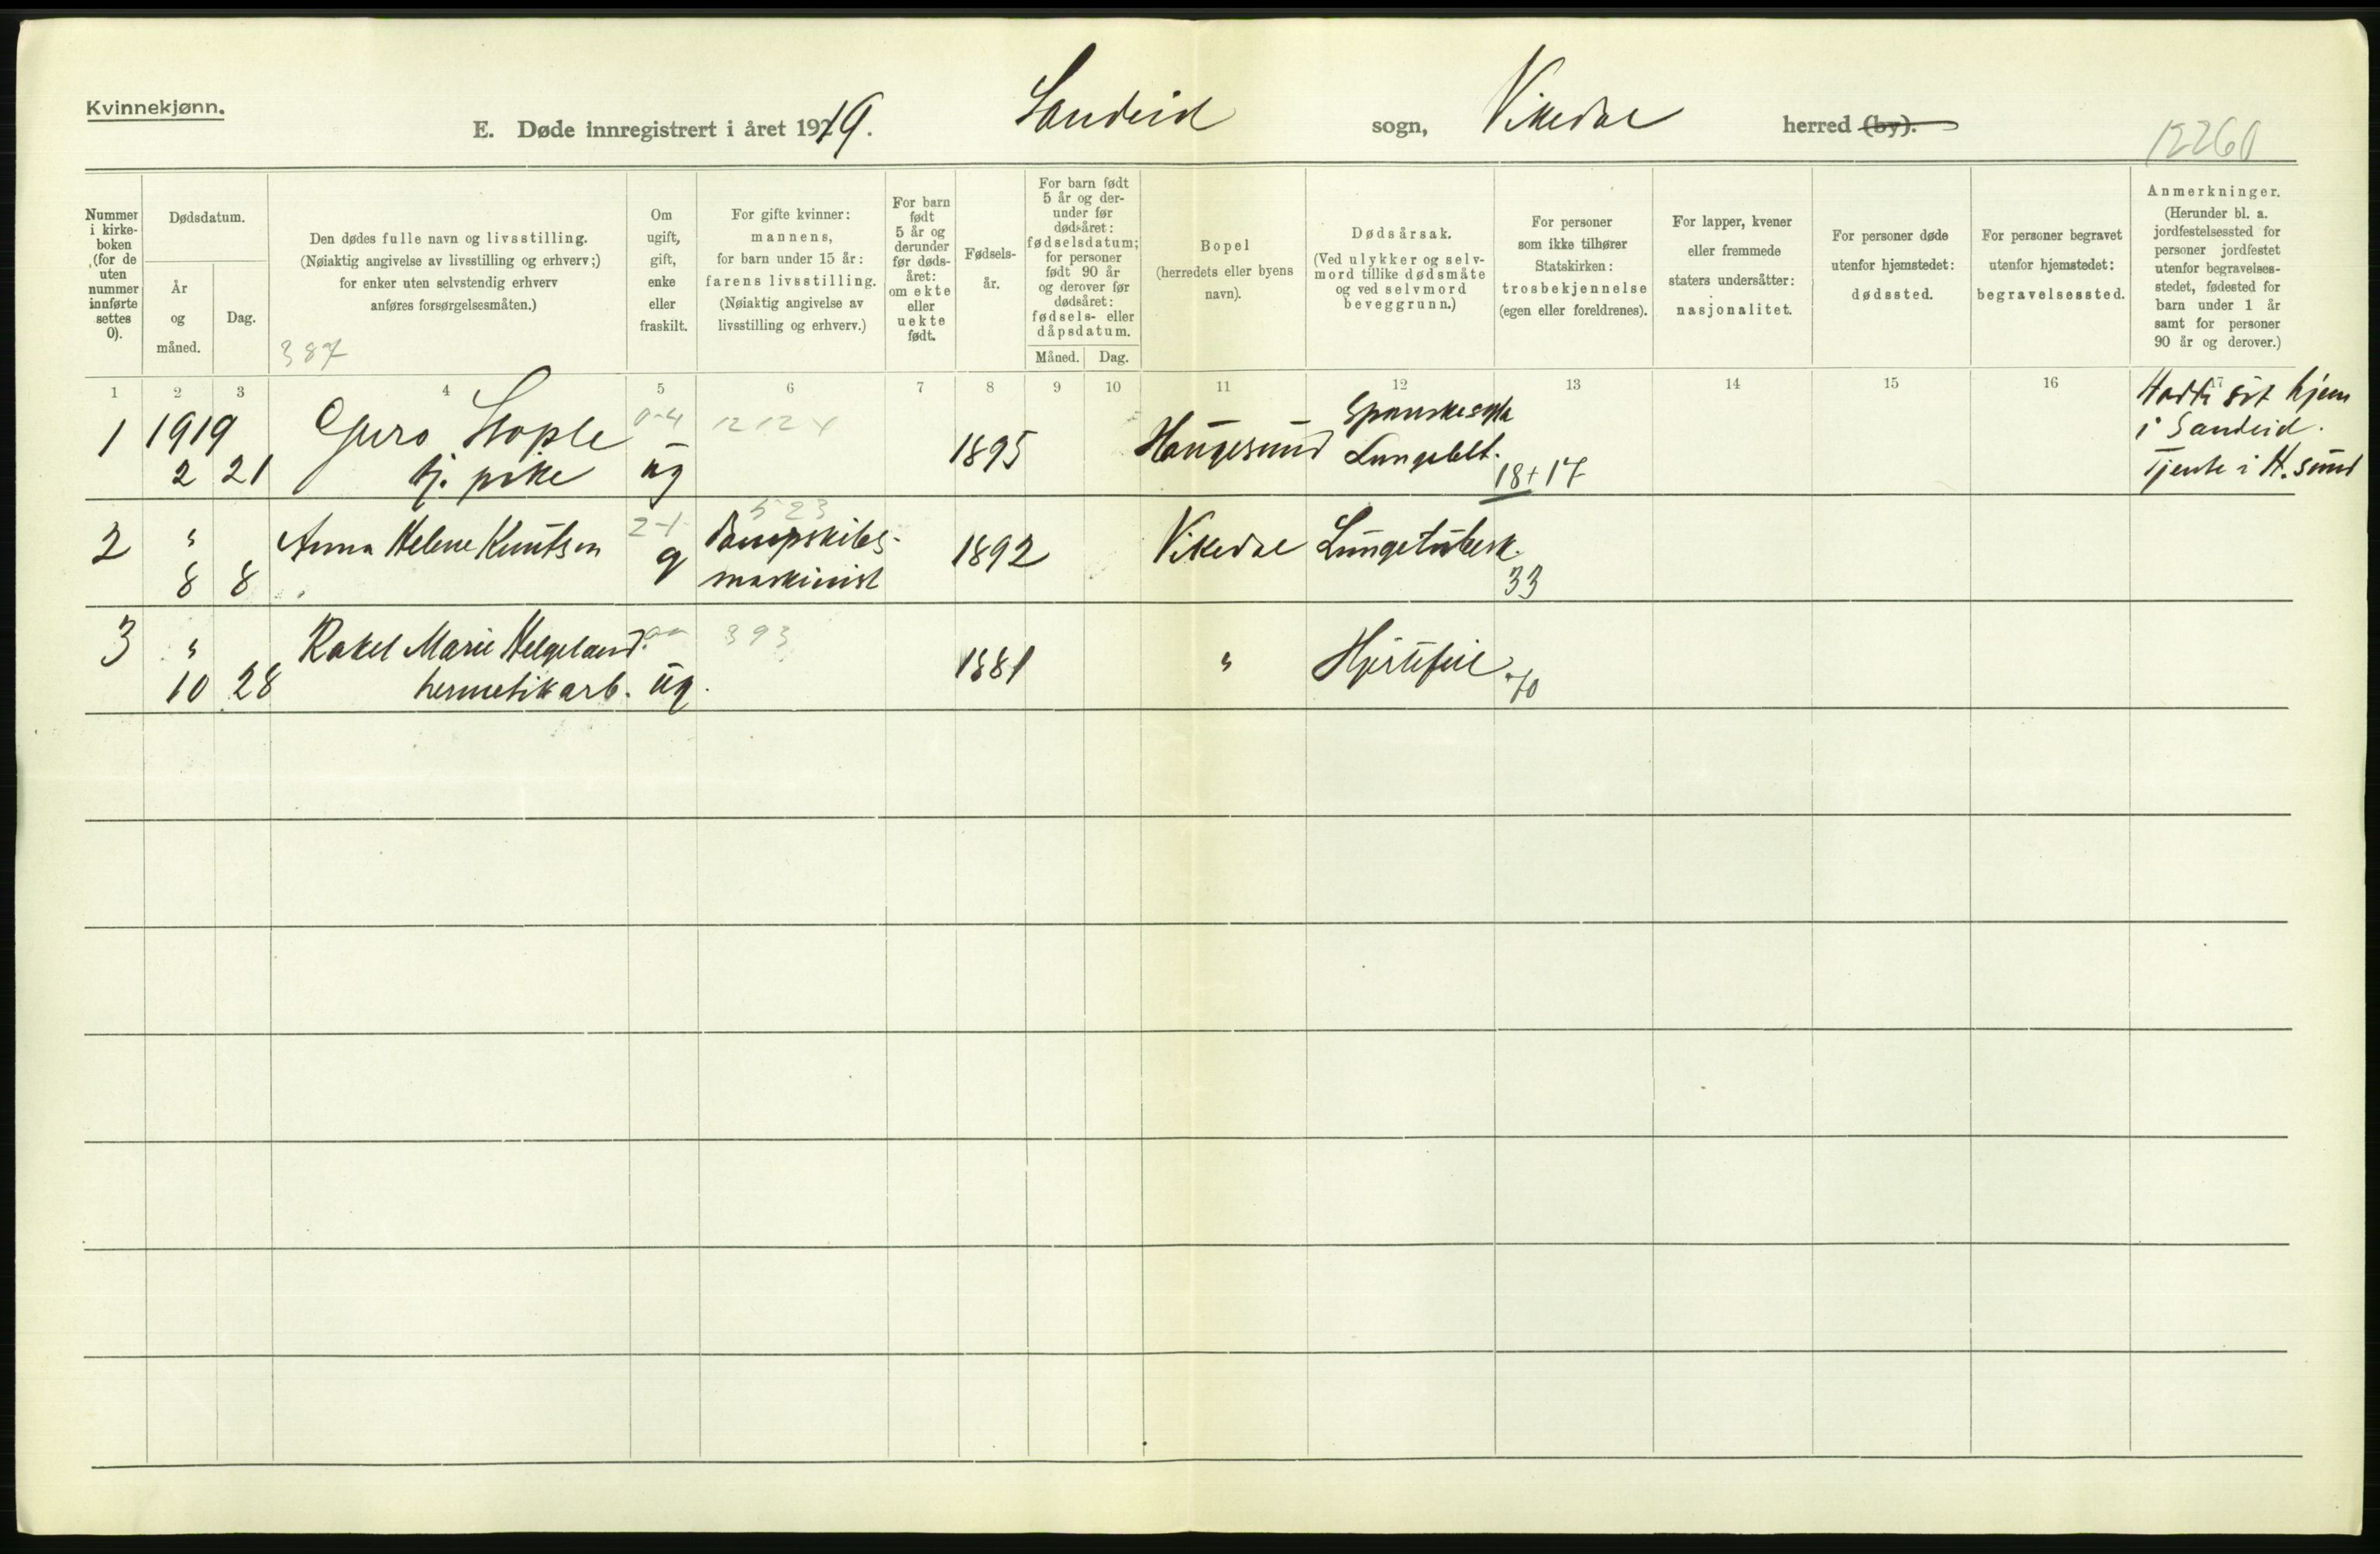 Kvinnekjønn.
E. Døde innregistrert i året 1919. Sandeid sogn, Vikedal herred (by).
12260
Nummer i kirkeboken (for de uten nummer innførte settes 0).
Dødsdatum.
År og måned.
Dag.
Den dødes fulle navn og livsstilling.
(Nøiaktig angivelse av livsstilling og erhverv;)
for enker uten selvstendig erhverv
anføres forsørgelsesmåten.)
387
Om ugift, gift, enke eller fraskilt.
For gifte kvinner:
mannens,
for barn under 15 år:
farens livsstilling.
(Nøiaktig angivelse av
livsstilling og erhverv.)
For barn født 5 år og derunder før dødsåret: om ekte eller uekte født.
Fødselsår.
For barn født 5 år og derunder før dødsåret: fødselsdatum; for personer født 90 år og derover før dødsåret: fødsels- eller dåpsdatum.
Måned. Dag.
Bopel
(herredets eller byens
navn).
Dødsårsak.
(Ved ulykker og selv-
mord tillike dødsmåte
og ved selvmord
beveggrunn.)
For personer
som ikke tilhører
Statskirken:
trosbekjennelse
(egen eller foreldrenes).
For lapper, kvener
eller fremmede
staters undersåtter:
nasjonalitet.
For personer døde
utenfor hjemstedet:
dødssted.
For personer begravet
utenfor hjemstedet:
begravelsessted.
Anmerkninger.
(Herunder bl. a.
jordfestelsessted for
personer jordfestet
utenfor begravelses-
stedet, fødested for
barn under 1 år
samt for personer
90 år og derover.)
1 2 3 4 5 6 7 8 9 10 11 12 13 14 15 16 17
1 1919 Guro Hople 0-4 Spanskesyke Hadde sit hjem
2 21 tj. pike ug 1895 Haugesund Lungebet. 18+17 i Sandeid.
Tjente i H.sund
2 " Anna Helene Knutsen 2-1 523 Dampskibs-
8 8 g maskinist 1892 Vikedal Lungetuberk. 33
3 " Rakel Marie Helgeland. 393
10 28 hermetikarb. ug. 1881 " Hjertefeil. 70